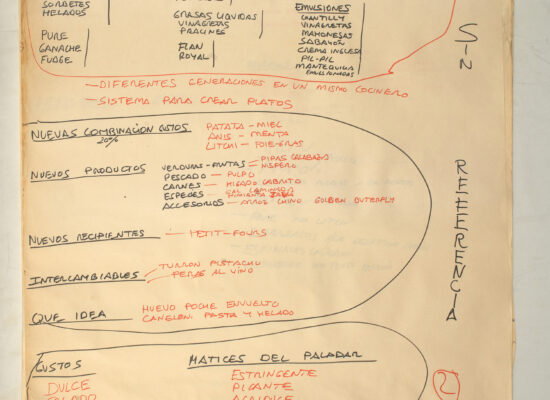 SORBETES
HELADOS
PURE
GANACHE
FUDGE
GRASAS LIQUIDAS
VINAGRETAS
PRALINES
FLAN
ROYAL
EMULSIONES
CHANTILLY
VINAGRETAS
MAHONESAS
SABAYON
CREMA INGLESA
PIL-PIL
MANTEQUILLA
EMULSIONADAS
— DIFERENTES GENERACIONES EN UN MISMO COCINERO
— SISTEMA PARA CREAR PLATOS
NUEVAS COMBINACION GUSTOS
20%
PATATA - MIEL
ANIS - MENTA
LITCHI - FOIE-GRAS
NUEVOS PRODUCTOS
VERDURAS-FRUTAS — PIPAS CALABAZA
NISPERO
PESCADO — PULPO
CARNES — HIGADO CABRITO
ESPECIES
ACCESORIOS — ARROS CHINO GOLDEN BUTERFLY
NUEVOS RECIPIENTES — PETIT-FOURS
INTERCAMBIABLES
TURRON PISTACHO
PERAS AL VINO
QUE IDEA
HUEVO POCHE ENVUELTO
CANELONI PASTA Y HELADO
GUSTOS
DULCE
SALADO
MATICES DEL PALADAR
ESTRINGENTE
PICANTE
SIN REFERENCIA
2